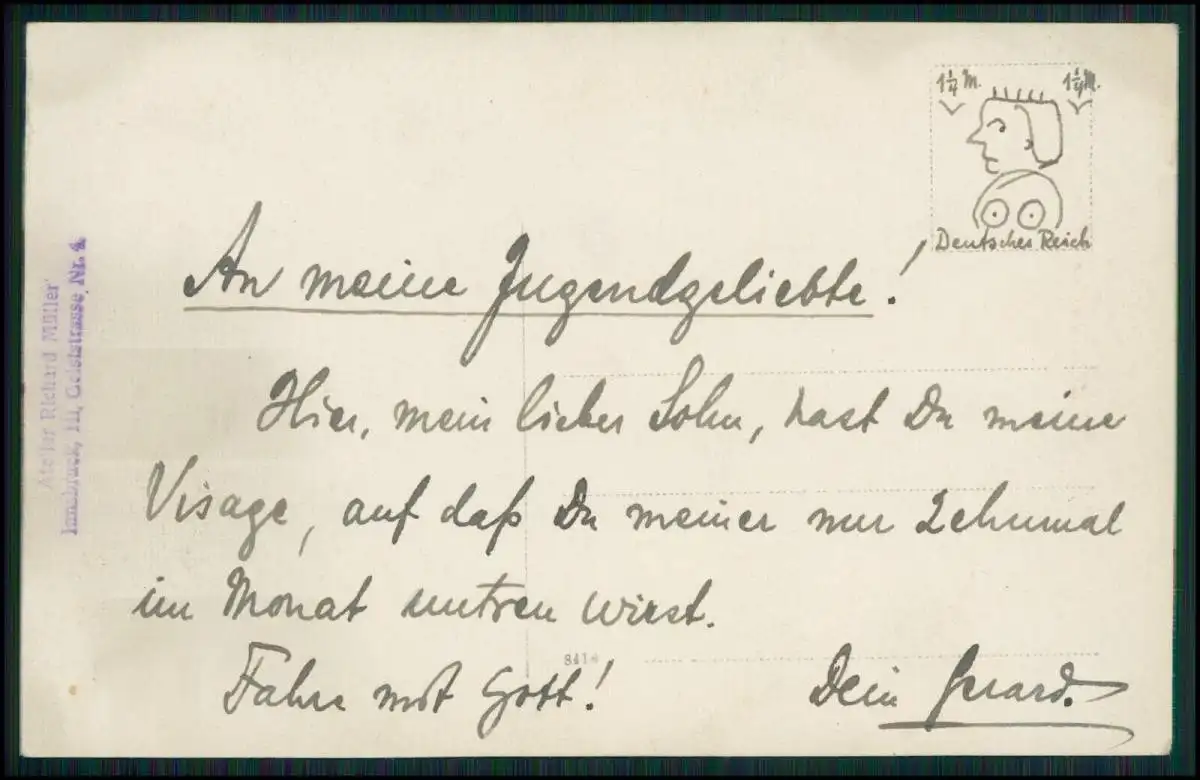 1¼ M. 1¼ M.
Deutsches Reich
An meine Jugendgeliebte!
Hier, mein lieber Sohn, hast Du meine
Visage, auf daß Du meiner nur Zehnmal
im Monat untreu wirst.
Fahre mit Gott!
Dein
841
Atelier Richard Müller
Innsbruck, III, Geiststrasse Nr. 4.